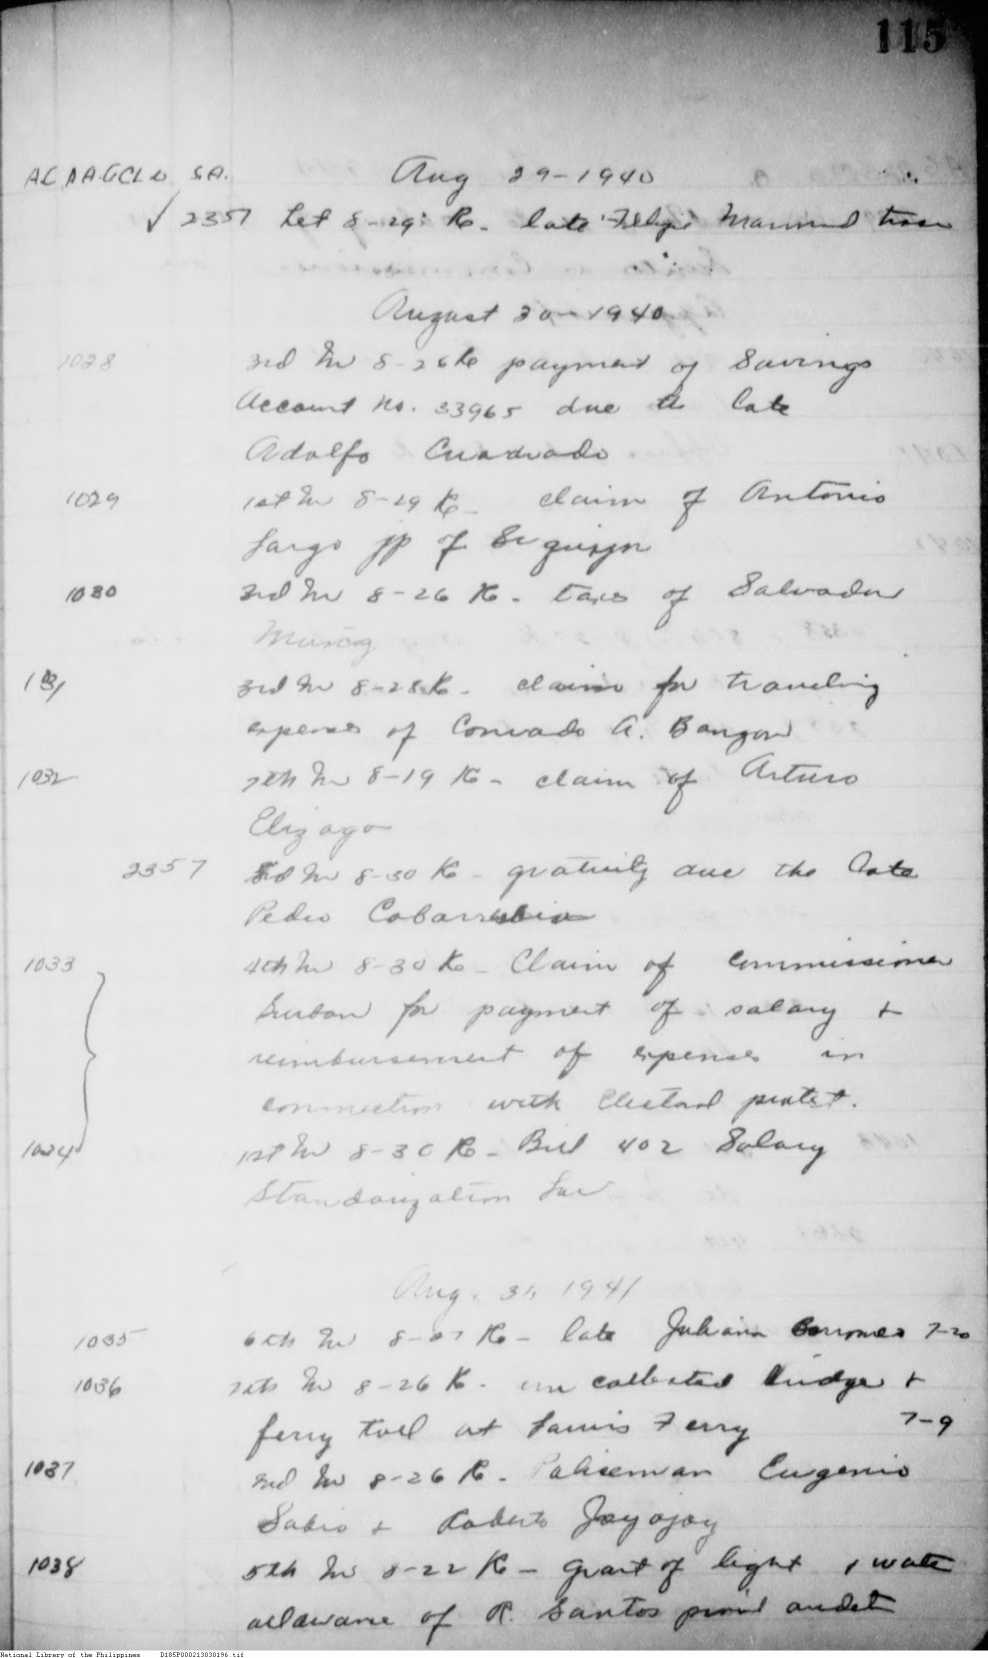 115
Aug 29-1940
✓ 2357 Let 8-29 K. late Felipe trea
August 30-1940
1028 3rd In 8-26 K payment of Savings
Account No. 33965 due to late
Adolfo Cuadrado
1029 1st In 8-29 K. claim of Antonio
Largo jp of
1030 3rd In 8-26 K. taxes of Salvador
1031 3rd In 8-28 K. claim for traveling
expenses of Conrado A. Bangon
1032 7th In 8-19 K - claim of Arturo
Elizaga
2357 3rd In 8-30 K - gratuity due the late
Pedro Cobarrubia
1033 4th In 8-30 K - Claim of commissioner
for payment of salary +
reimbursement of expenses in
connection with Electoral protest.
1034 1st In 8-30 K - Bill 402 Salary
Standarization Law
Aug. 31, 1941
1035 6th In 8-27 K - late Juliana Borromeo 7-20
1036 7th In 8-26 K. un collected bridge +
ferry toll at Ferry 7-9
1037 3rd In 8-26 K. Policeman Eugenio
Sabio + Roberto Jayojoy
1038 5th In 8-22 K - grant of light , water
allowance of R. Santos audit
National Library of the Philippines D185P000213030196.tif